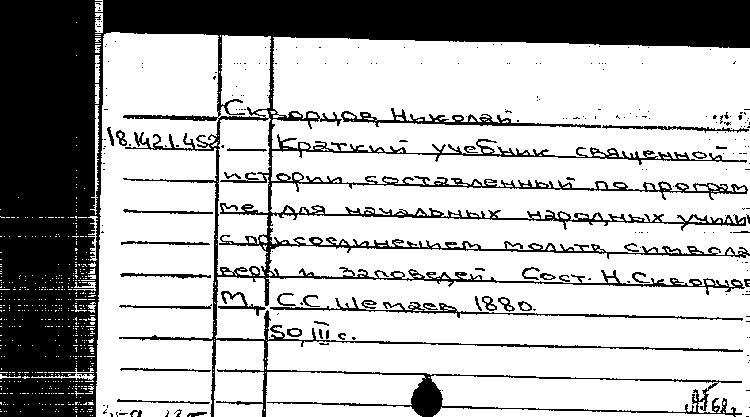 Скворцов, Николай.
18.142.1.452. Краткий учебник священной
истории, составленный по програм
ме для начальных народных учили
с присоединением молитв, символа
веры и заповедей. Сост. Н. Скворцов
М., С.С. Шемаев, 1880.
50, III с.